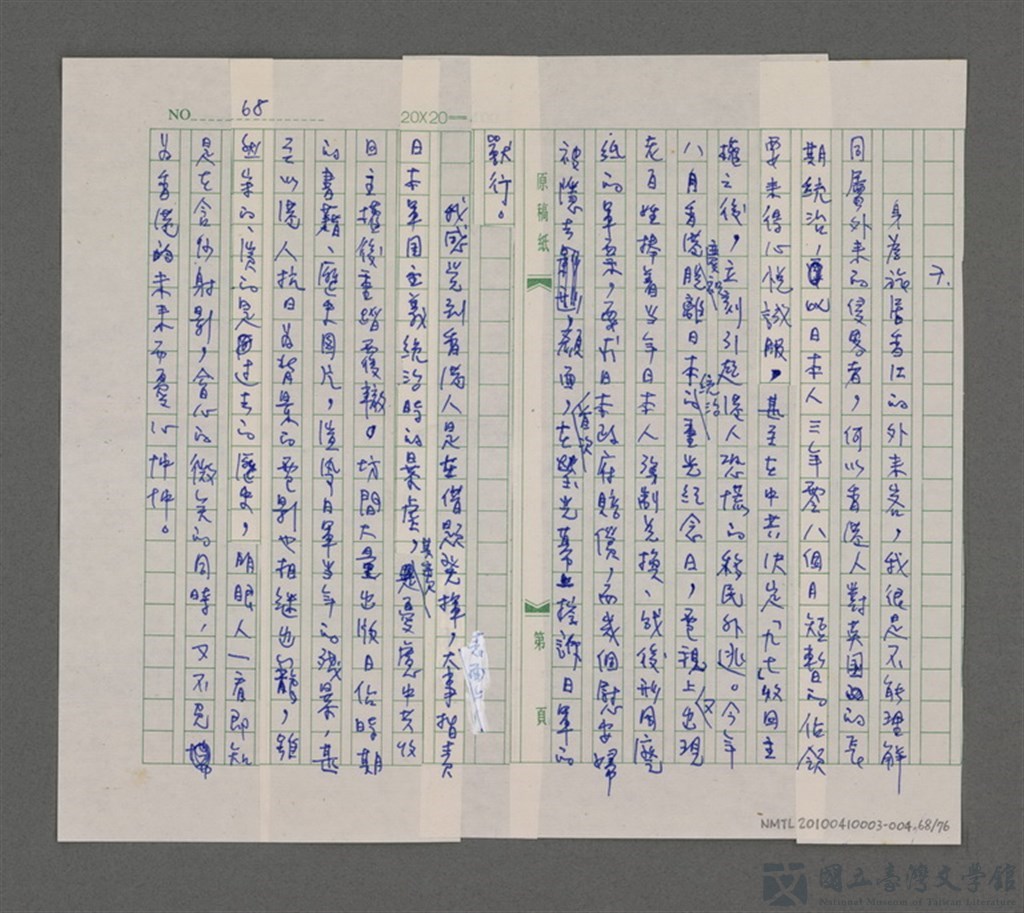 NO 68
20×20=
7.
身為旅居香江的外來客，我很是不能理解
同屬外來的侵略者，何以香港人對英國的長
期統治，以日本人三年零八個月短暫的佔領
要來得心悅誠服，甚至在中共決定「九七」收回主
權之後，立刻引起港人恐慌的移民外逃。今年
八月香港慶祝脫離日本統治的重光紀念日，電視上又出現
老百姓捧着當年日本人強制兌換、戰後形同廢
紙的軍票，要求日本政府賠償，而幾個慰安婦
被隱去顏面，在螢光幕上控訴日軍的
獸行。
原稿紙
第 頁
我感覺到香港人是在借題發揮，表面上大事指責
日本軍國主義統治時的暴虐，其實憂慮中共收
回主權後重蹈覆轍。坊間大量出版日佔時期
的書籍、歷史圖片，渲染日軍當年的殘暴，甚
至以港人抗日為背景的電影也相繼出籠，雖
然年的、演的是過去的歷史，明眼人一看即知
是在含沙射影，會心的微笑的同時，又不免
為香港的未來而憂心忡忡。
NMTL 20100410003-004.68/76
國立臺灣文學館
National Museum of Taiwan Literature